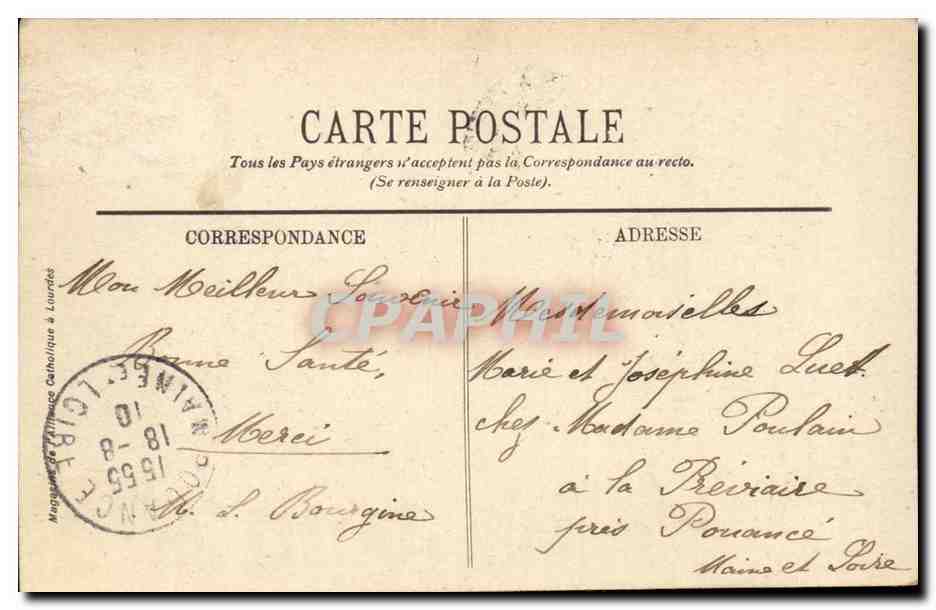 CARTE POSTALE
Tous les Pays étrangers n'acceptent pas la Correspondance au recto.
(Se renseigner à la Poste).
CORRESPONDANCE
Mon Meilleur Souvenir
Bonne Santé,
Merci
M. L. Bourgine
ADRESSE
Mesdemoiselles
Marie et Joséphine Luet
chez Madame Poulain
à la Préviaire
près Pouancé
Maine et Loire
Magasins de l'Alliance Catholique à Lourdes
POUANCÉ
MAINE-ET-LOIRE
15 55
18 -8
10
CPAPHIL